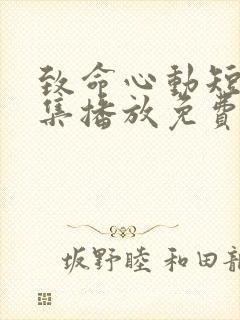 致命心動短
集播放免費
坂野睦 和田龍